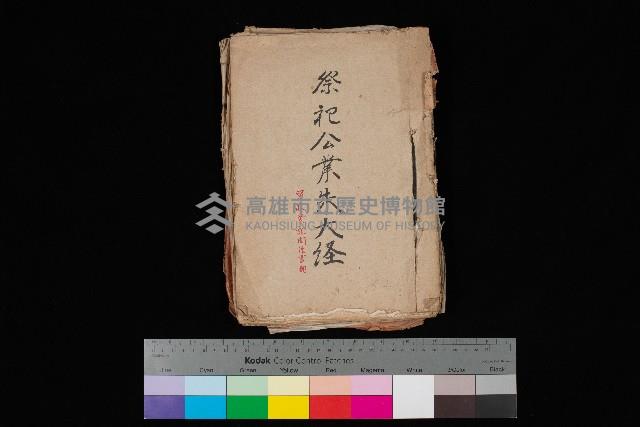 祭祀公業朱大経
高雄市立歷史博物館
KAOHSIUNG MUSEUM OF HISTORY
Kodak Color Control Patches
Blue Cyan Green Yellow Red Magenta White 3/Color Black